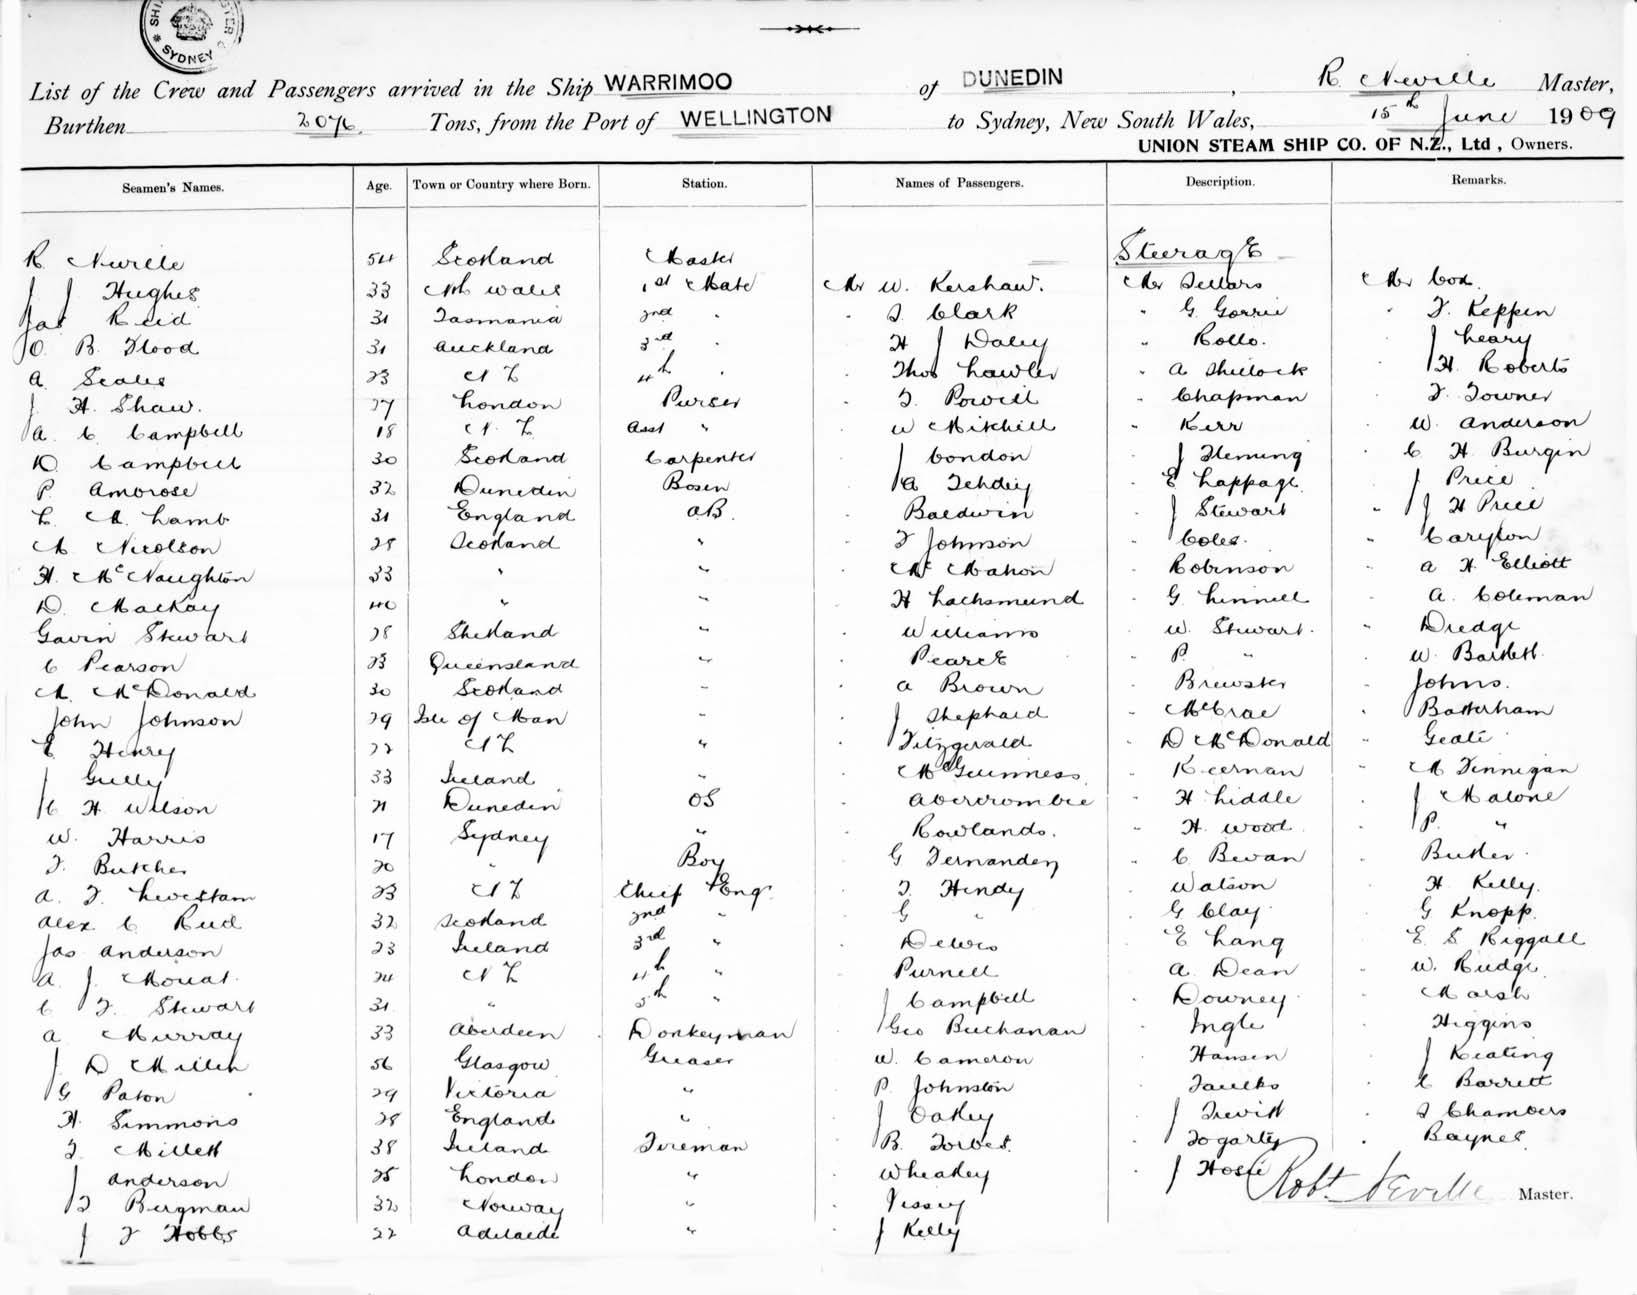 SYDNEY
List of the Crew and Passengers arrived in the Ship WARRIMOO of DUNEDIN, R Neville Master,
Burthen 2076 Tons, from the Port of WELLINGTON to Sydney, New South Wales, 15th June 1909
UNION STEAM SHIP CO. OF N.Z., Ltd, Owners.
Seamen's Names. Age. Town or Country where Born. Station. Names of Passengers. Description. Remarks.
Steerage
R Neville 54 Scotland Master
J J Hughes 33 Nth Wales 1st Mate Mr W. Kershaw. Mr Sellars Mr Cox.
Jas Reid 31 Tasmania 2nd " " Clark " G. Gorrie " Keppen
O. B. Flood 31 Auckland 3rd " " H J Daley " Rollo. " J Leary
A. Scales 23 N Z 4th " " Thos Lawler " A Shillock " H. Roberts
J H. Shaw. 27 London Purser " Powell " Chapman " Towner
A. C. Campbell 18 N. Z. Asst " " W Mitchell " Kerr " W. Anderson
D. Campbell 30 Scotland Carpenter " J Condon " J Fleming " C H. Burgin
P. Ambrose 32 Dunedin Bosen " A " E Lappage. " J Price
L. M. Lamb 31 England AB. " Baldwin " J Stewart " J H Price
M. Nicolson 28 Scotland " " F Johnson " Coles. "
H. McNaughton 33 " " " McMahon " Robinson " A H. Elliott
D. Mackay 40 " " " H Lachsmund " G. Linnell " A. Coleman
Gavin Stewart 28 Shetland " " Williams " W. Stewart. " Dredge
C Pearson 23 Queensland " " Pearce " P. " " W. Bartlett.
M. McDonald 30 Scotland " " A Brown " Brewster " Johns.
John Johnson 29 Isle of Man " " J Shephard " McCrae " Batterham
E Henry 22 N Z " " Fitzgerald " D McDonald "
J Gully 33 Ireland " " McGuinness " Keernan " M Finnigan
C H Wilson 21 Dunedin OS " Abercrombie " H Liddle " J Malone
W. Harris 17 Sydney " " Rowlands. " H. Wood " P. "
F. Butcher 20 " Boy " G Fernandez " C Bevan " Butler.
A. F. 23 N Z Chief Engr. " Hendy Watson " H. Kelly.
Alex C Reid 32 Scotland 2nd " " G " " G Clay " G Knopp.
Jas Anderson 23 Ireland 3rd " " " E Lang " E S Riggall
A. J. Mouat. 24 N Z 4th " " Purnell " A. Dean " W. Rudge.
C F. Stewart 31 " 5th " " J Campbell " Downey " Marsh
A Murray 33 Aberdeen Donkeyman " Geo Buchanan " Ingle " Higgins
J D Millen 56 Glasgow Greaser " W. Cameron " Hansen " J Keating
G Paton 29 Victoria " " P. Johnston " Faulks " C Barrett
H. Simmons 28 England " " J Oatley " J Trevitt " Chambers
Millett 38 Ireland Fireman " B. Forbes. " Fogarty " Baynes.
J Anderson 25 London " " Wheatley " J Hosie
Bergman 32 Norway " " Vessey
J F Hobbs 22 Adelaide " " J Kelly
Robt Neville Master.